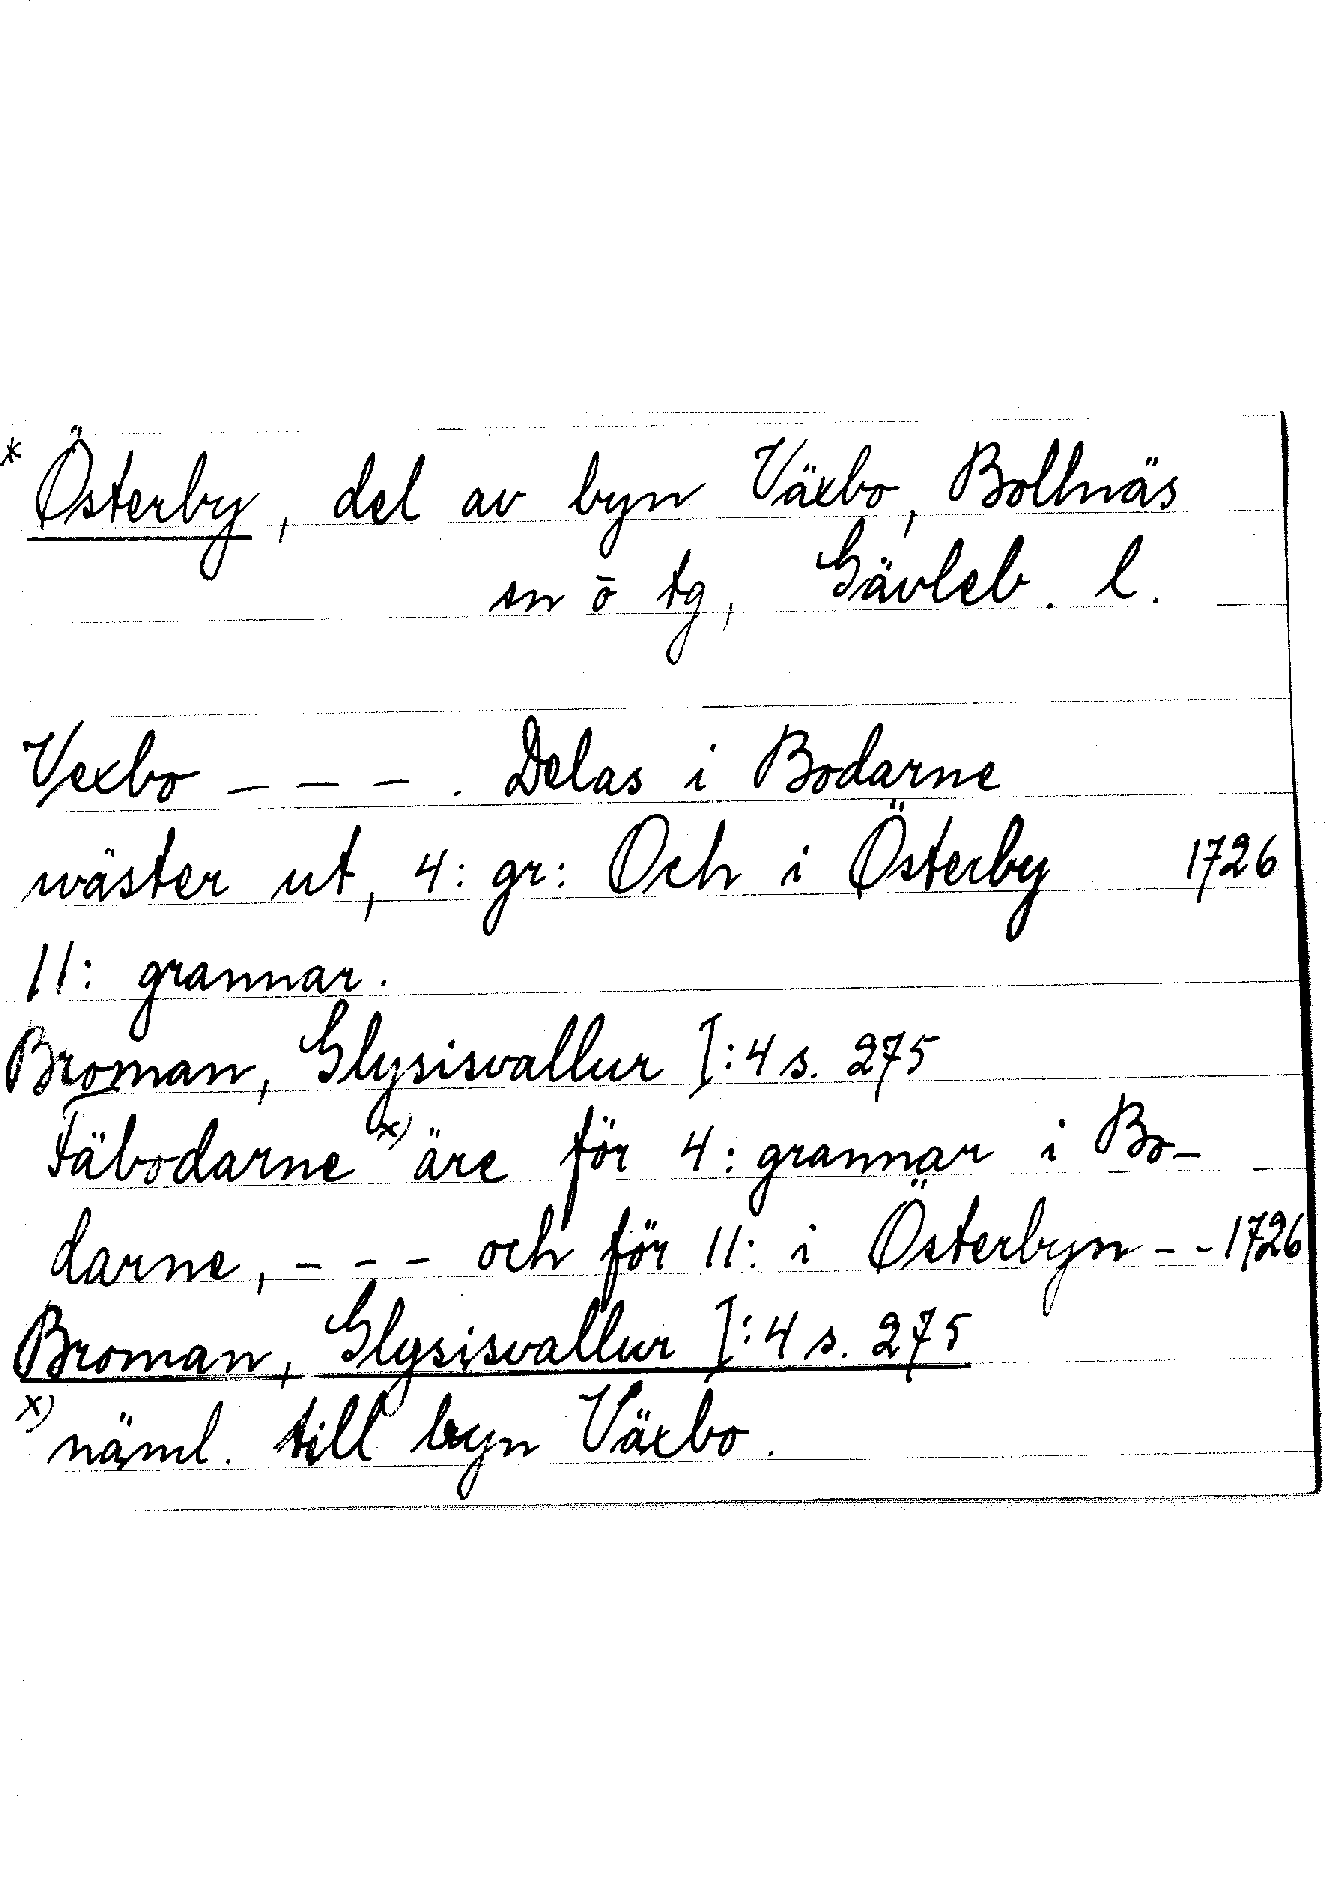 * Österby, del av byn Växbo, Bollnäs
sn o tg, Gävleb. l.
Vexbo – – – . Delas i Bodarne
wäster ut, 4: gr: Och i Österby 1726
11: grannar.
Broman, Glysisvallur I:4 s. 275
Fäbodarne x) äre för 4: grannar i Bo-
darne, – – – och för 11: i Österbyn – – 1726
Broman, Glysisvallur I:4 s. 275
x) näml. till byn Växbo.